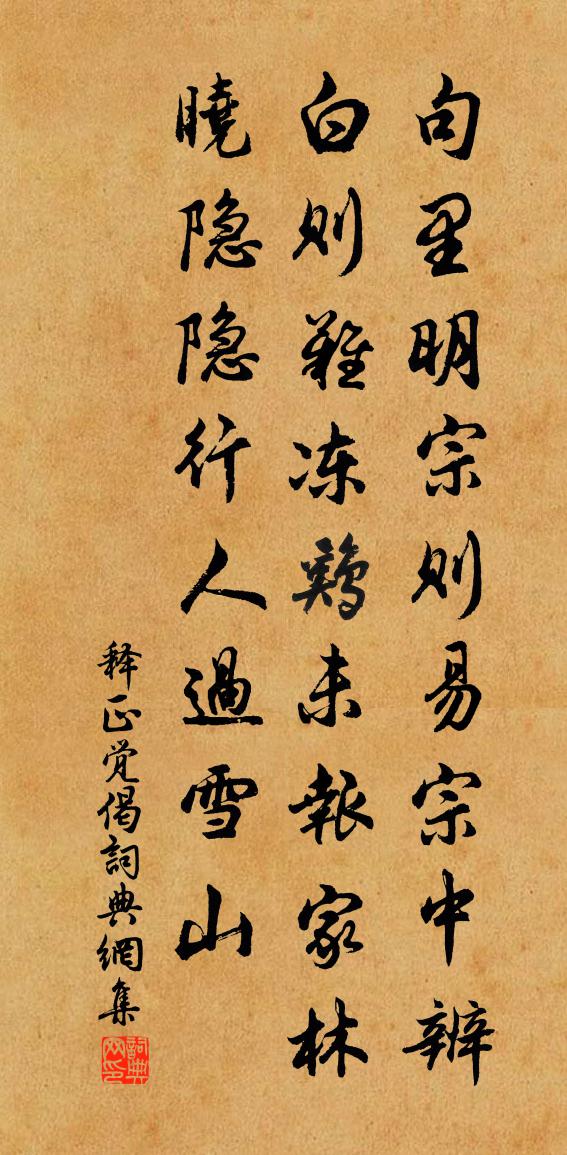 句里明宗则易宗中辨
白则难冻鷄未報家林
曉隐隐行人過雪山
释正觉偈詞典網集
詞典網印